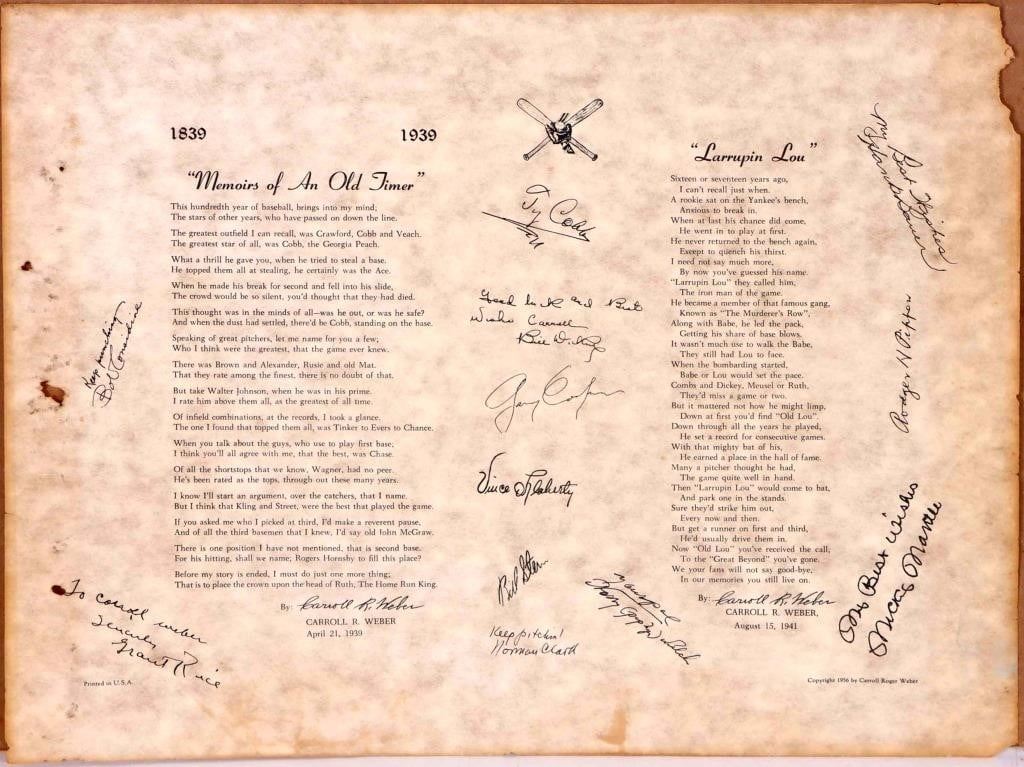 1839 1939
"Memoirs of An Old Timer"
This hundredth year of baseball, brings into my mind;
The stars of other years, who have passed on down the line.
The greatest outfield I can recall, was Crawford, Cobb and Veach.
The greatest star of all, was Cobb, the Georgia Peach.
What a thrill he gave you, when he tried to steal a base.
He topped them all at stealing, he certainly was the Ace.
When he made his break for second and fell into his slide,
The crowd would be so silent, you'd thought that they had died.
This thought was in the minds of all—was he out, or was he safe?
And when the dust had settled, there'd be Cobb, standing on the base.
Speaking of great pitchers, let me name for you a few;
Who I think were the greatest, that the game ever knew.
There was Brown and Alexander, Rusie and old Mat.
That they rate among the finest, there is no doubt of that.
But take Walter Johnson, when he was in his prime.
I rate him above them all, as the greatest of all time.
Of infield combinations, at the records, I took a glance.
The one I found that topped them all, was Tinker to Evers to Chance.
When you talk about the guys, who use to play first base;
I think you'll all agree with me, that the best, was Chase.
Of all the shortstops that we know, Wagner, had no peer.
He's been rated as the tops, through out these many years.
I know I'll start an argument, over the catchers, that I name.
But I think that Kling and Street, were the best that played the game.
If you asked me who I picked at third, I'd make a reverent pause,
And of all the third basemen that I knew, I'd say old John McGraw.
There is one position I have not mentioned, that is second base.
For his hitting, shall we name; Rogers Hornsby to fill this place?
Before my story is ended, I must do just one more thing;
That is to place the crown upon the head of Ruth, The Home Run King.
By: Carroll R. Weber
CARROLL R. WEBER
April 21, 1939
Keep punching
Bob Considine
To Carroll Weber
Sincerely
Grant Rice
Printed in U.S.A.
Ty Cobb
Good luck and Best
Wishes Carroll
Bill Dickey
Gary Cooper
Vince Flaherty
Bill Stern
Keep pitchin'
Norman Clark
"Larrupin Lou"
Sixteen or seventeen years ago,
I can't recall just when.
A rookie sat on the Yankee's bench,
Anxious to break in.
When at last his chance did come,
He went in to play at first.
He never returned to the bench again,
Except to quench his thirst.
I need not say much more,
By now you've guessed his name.
"Larrupin Lou" they called him;
The iron man of the game.
He became a member of that famous gang,
Known as "The Murderer's Row",
Along with Babe, he led the pack,
Getting his share of base blows.
It wasn't much use to walk the Babe,
They still had Lou to face.
When the bombarding started,
Babe or Lou would set the pace.
Combs and Dickey, Meusel or Ruth,
They'd miss a game or two.
But it mattered not how he might limp,
Down at first you'd find "Old Lou".
Down through all the years he played,
He set a record for consecutive games.
With that mighty bat of his,
He earned a place in the hall of fame.
Many a pitcher thought he had,
The game quite well in hand.
Then "Larrupin Lou" would come to bat,
And park one in the stands.
Sure they'd strike him out,
Every now and then.
But get a runner on first and third,
He'd usually drive them in.
Now "Old Lou" you've received the call;
To the "Great Beyond" you've gone.
We your fans will not say good-bye,
In our memories you still live on.
By: Carroll R. Weber
CARROLL R. WEBER
August 15, 1941
My Best Wishes
Rodger N Pippen
My Best Wishes
Mickey Mantle
Copyright 1956 by Carroll Roger Weber